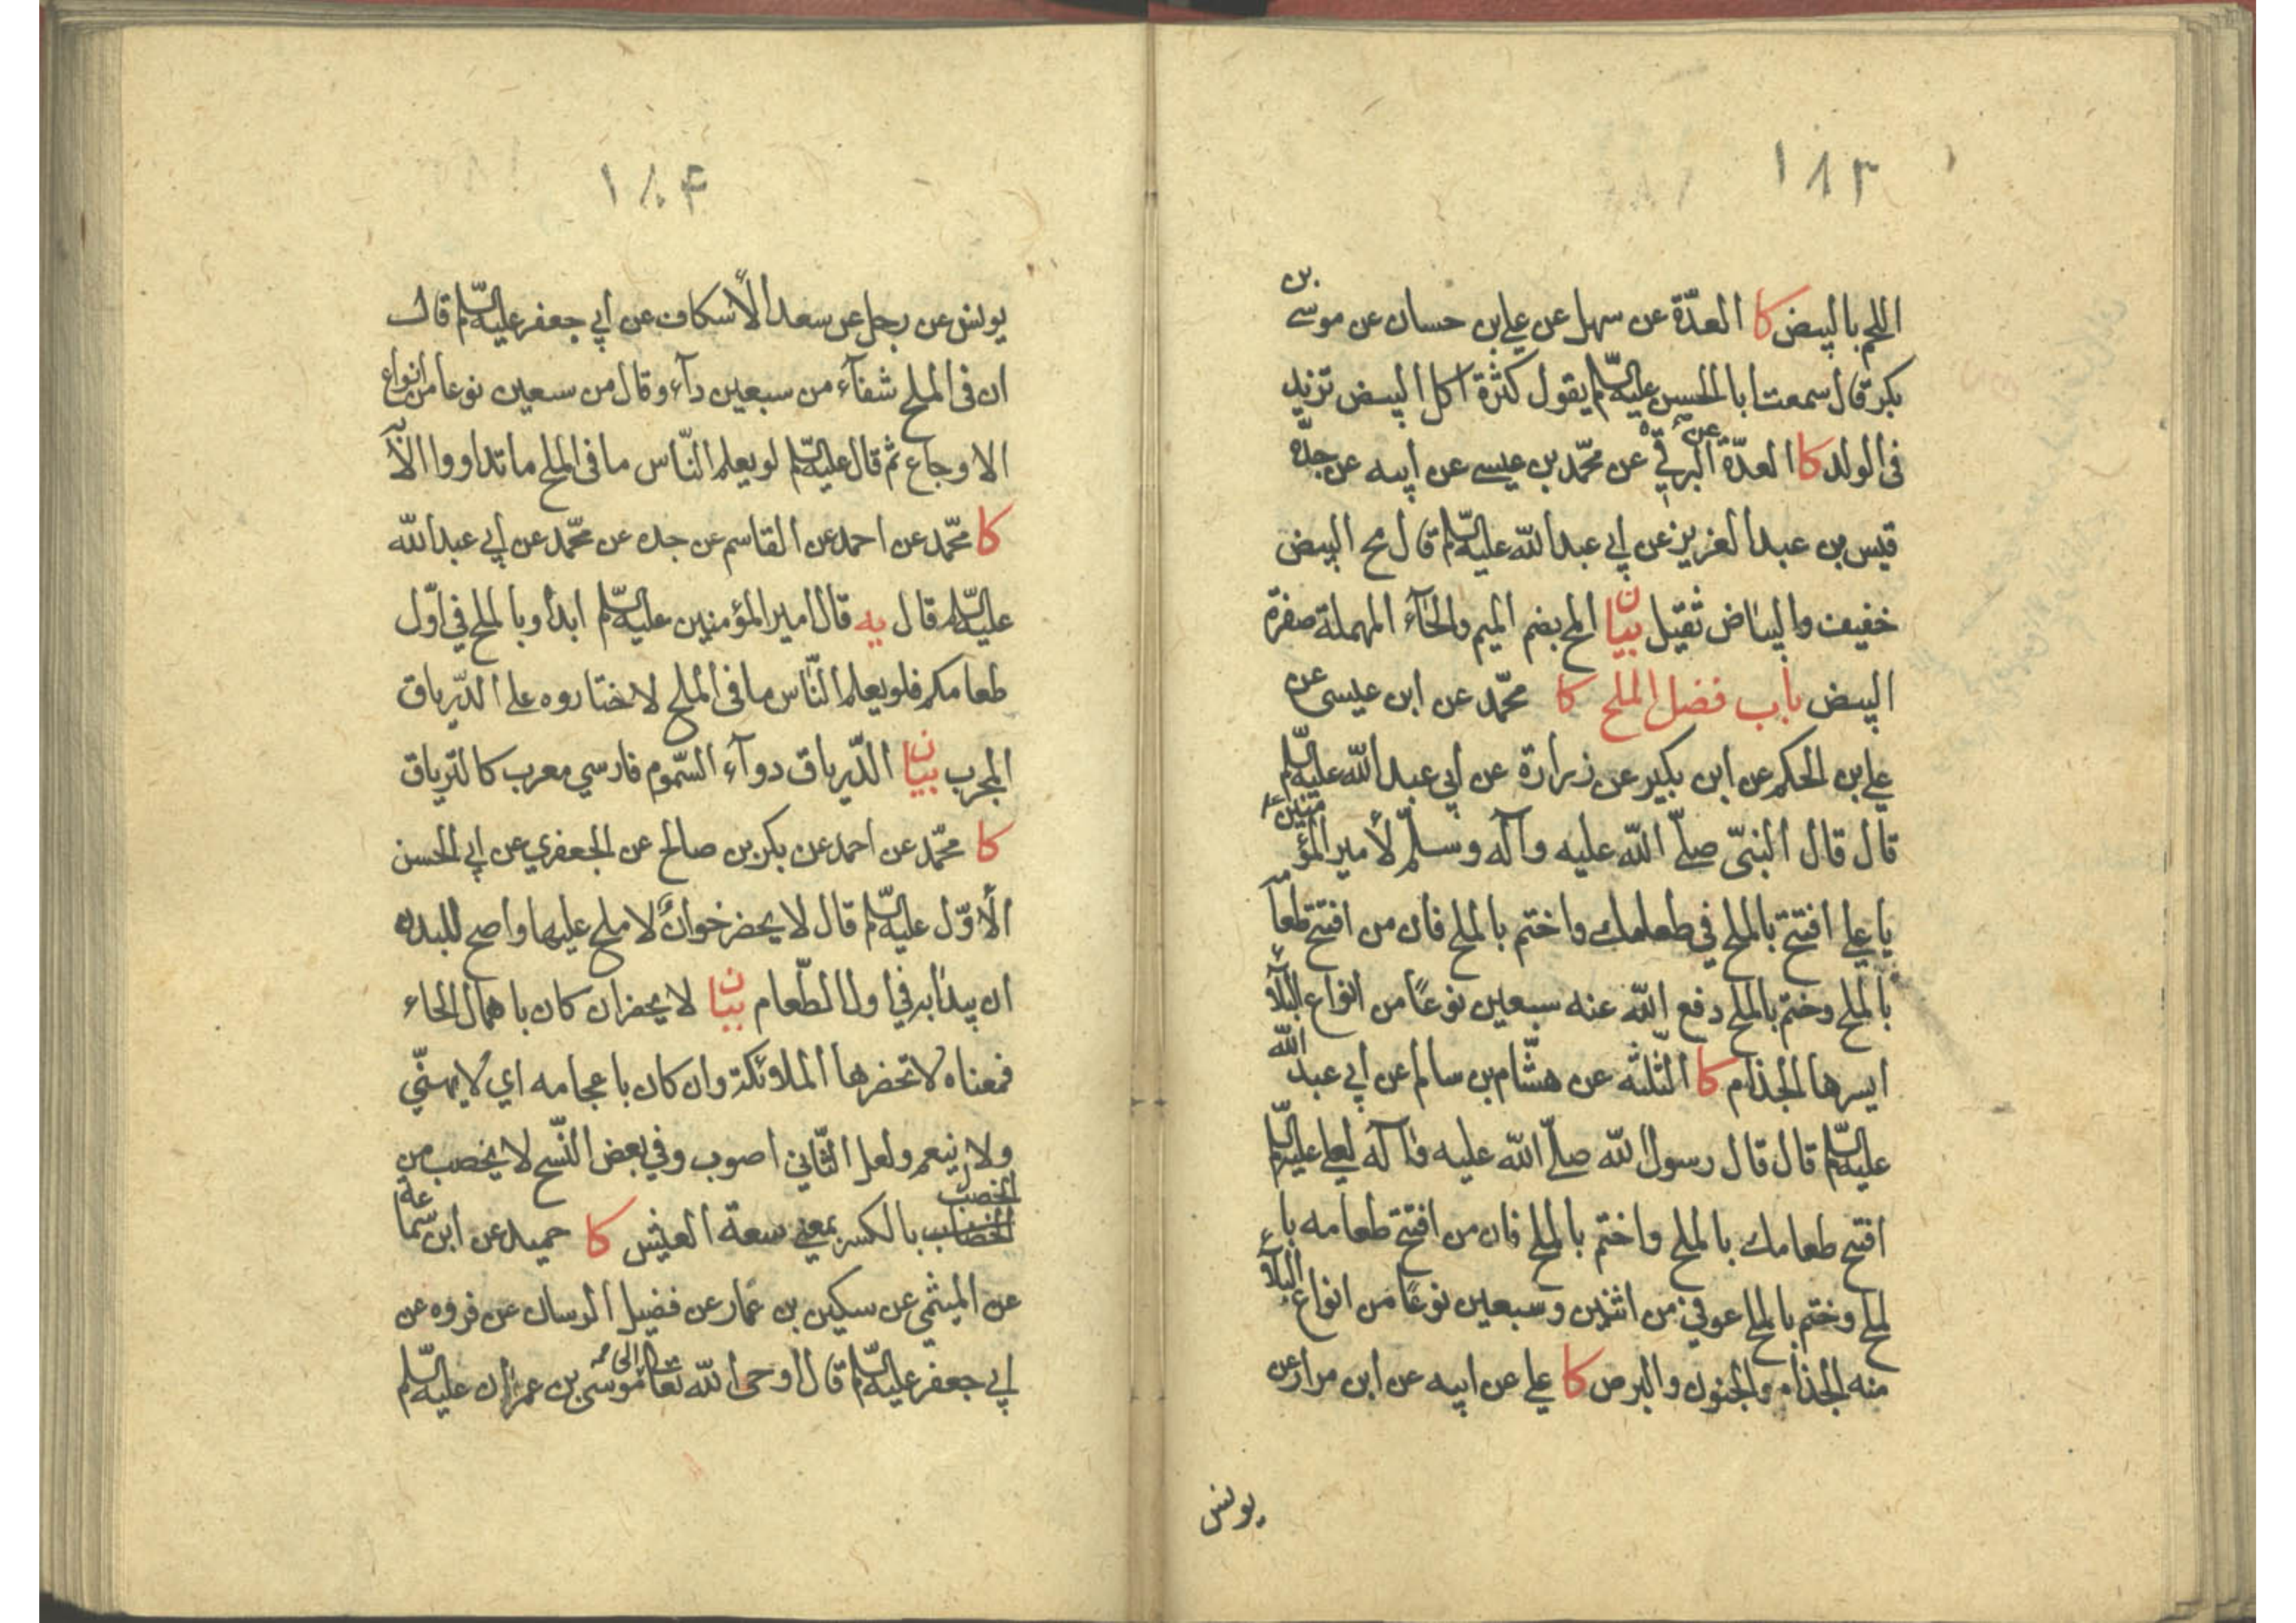 ١٨٣
اللحم بالبيض كا العدّة عن سهل عن علي بن حسان عن موسى بن
بكر قال سمعت ابا الحسن عليه السّلم يقول كثرة اكل البيض تزيد
فى الولد كا العدّة عن البرقيّ عن محمّد بن عيسى عن ابيه عن جدّه
قيس بن عبد العزيز عن ابي عبد الله عليه السّلم قال مح البيض
خفيف والبياض ثقيل بيان المح بضم الميم والحآء المهملة صفرة
البيض باب فضل الملح كا محمّد عن ابن عيسى عن
علي بن الحكم عن ابن بكير عن زرارة عن ابي عبد الله عليه السّلم
قال قال النبيّ صلّى الله عليه وآله وسلّم لأمير المؤمنين ع
يا علي افتتح بالملح في طعامك واختم بالملح فان من افتتح طعامه
بالملح وختم بالملح دفع الله عنه سبعين نوعًا من انواع البلآء
ايسرها الجذام كا الثّلثة عن هشّام بن سالم عن ابي عبد الله
عليه السّلم قال قال رسول الله صلّى الله عليه وآله لعلي عليه السّلم
افتح طعامك بالملح واختم بالملح فان من افتتح طعامه با
لملح وختم بالملح عوفي من اثنين وسبعين نوعًا من انواع البلآء
منه الجذام والجنون والبرص كا علي عن ابيه عن ابن مرار عن
يونس
١٨۴
يونس عن رجل عن سعد الأسكاف عن ابي جعفر عليه السّلم قال
ان فى الملح شفآء من سبعين دآء وقال من سبعين نوعا من انواع
الاوجاع ثم قال عليه السّلم لو يعلم النّاس ما فى الملح ما تداووا الّا به
كا محمّد عن احمد عن القاسم عن جده عن محمّد عن ابي عبد الله
عليه السّلم قال يه قال امير المؤمنين عليه السّلم ابدأوا بالملح في اوّل
طعامكم فلو يعلم النّاس ما فى الملح لاختاروه على الدّرياق
المجرب بيان الدّرياق دوآء السّموم فارسي معرب كالترياق
كا محمّد عن احمد عن بكر بن صالح عن الجعفري عن ابي الحسن
الأوّل عليه السّلم قال لا يحضر خوانٌ لا ملح عليها واصح للبدن
ان يبدأ به في اول الطّعام بيان لا يحضر ان كان باهمال الحاء
فمعناه لا تحضرها الملائكة وان كان باعجامه اي لا يهنّي
ولا ينعم ولعل الثّاني اصوب وفي بعض النّسخ لا يخصب من
الخصب بالكسر بمعنى سعة العيش كا حميد عن ابن سّماعة
عن الميثمي عن سكين بن عمّار عن فضيل الرسان عن فروه عن
ابي جعفر عليه السّلم قال اوحى الله تعالى الى موسى بن عمران عليه السّلم